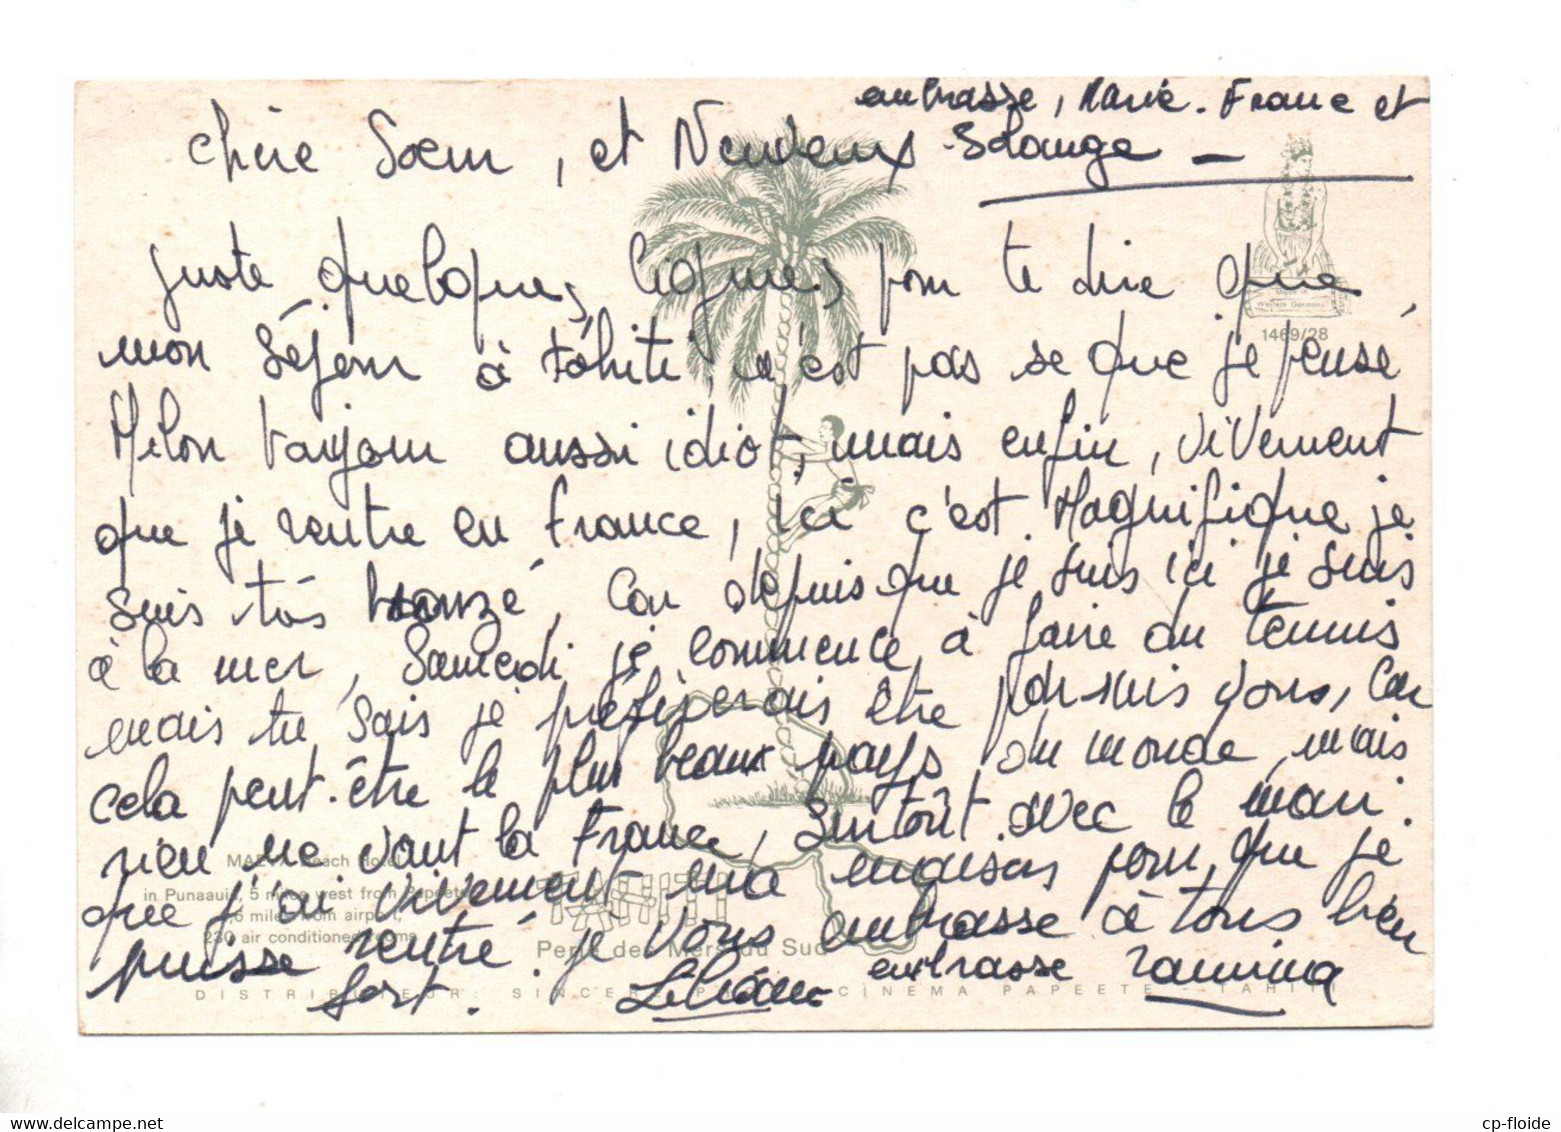 embrasse, Marie-France et
Solange –
Chère Sœur, et Neuveux
juste quelques lignes pour te dire que
mon séjour à Tahiti, n'est pas se que je pensé
toujours aussi idiot, mais enfin, vivement
que je rentre en France, ici c'est Magnifique je
suis très bronzé, Car depuis que je suis ici je suis
à la mer, Samedi je commence à faire du tennis
mais tu sais je préférerais être parmis vous, Car
cela peut-être le plus beaux pays du monde, mais
rien ne vaut la France, surtout avec le mari
que j'ai vivement ma maison pour que je
puisse rentré. je vous embrasse à tous bien
fort. Liliane embrasse
Made in
Western Germany
1469/28
MAEVA Beach Hotel
in Punaauia, 5 miles west from Papeete
6 miles from airport,
230 air conditioned rooms
TAHITI
Perle des Mers du Sud
DISTRIBUTEUR: SINCERE CINEMA PAPEETE - TAHITI
cp-floide